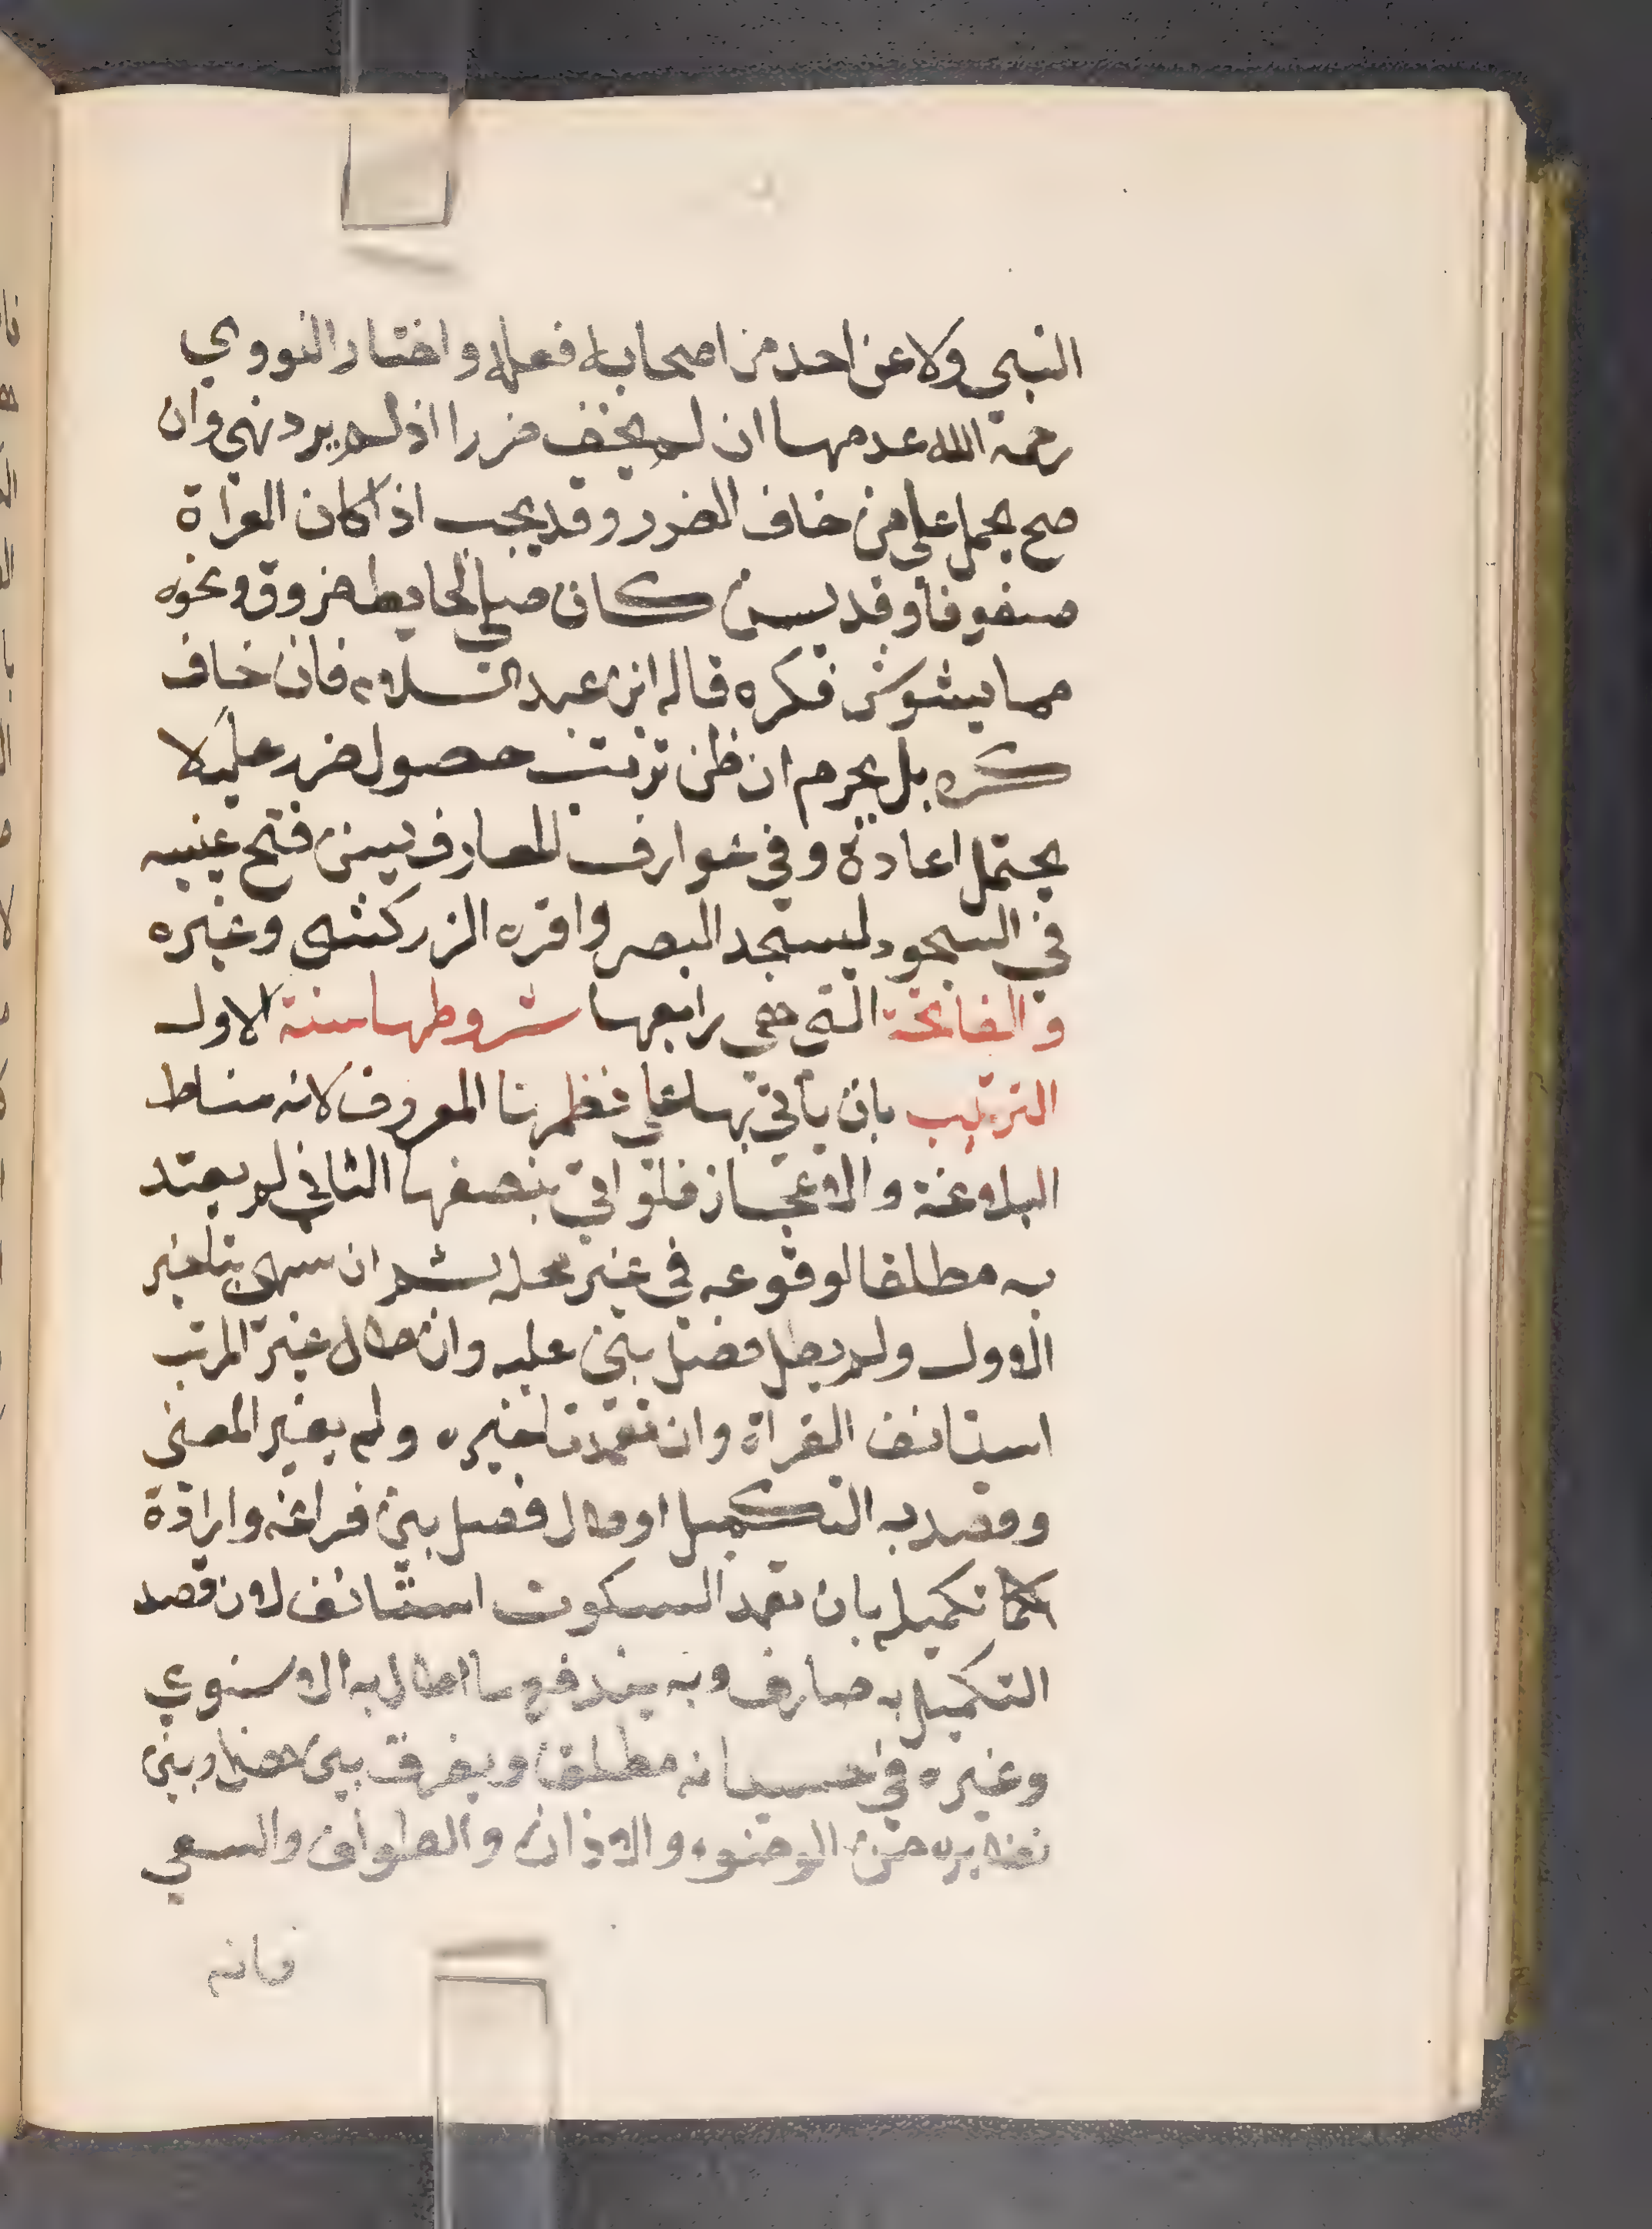 النبي ولا عن احد من اصحابه فعله واختار النووي
رحمة الله عدمها ان لم يخف ضررا اذ لم يرد نهي وان
صح يحمل علي من خاف الضرر وقد يجب اذا كان العراة
صفوفا وقد يسن كان صلي لحايط مزوق ونحوه
مما يشوش فكره قاله ابن عبد السلام فان خاف
كره بل يحرم ان ظن ترتب حصول ضرر عليه لا
يحتمل اعادة وفي عوارف المعارف يسن فتح عينيه
في السجود ليسجد البصر واقره الزركشي وغيره
والفاتحة التي هي رابعها شروطها ستة الاول
الترتيب بان ياتي بها علي نظمها المعروف لانه مناط
البلاغة والاعجاز فلو اتي بنصفها الثاني لم يعتد
به مطلقا لوقوعه في غير محله ثم ان سهي بتاخير
الاول ولم يطل فصل بني عليه وان طال غير المرتب
استانف القراة وان تعمد تاخيره ولم يغير المعني
وقصد به التكميل او طال فصل بين فراغه وارادة
تكميله بان تعمد السكوت استانف لان قصد
التكميل به صارف وبه يندفع ما اطال به الاسنوي
وغيره في حسبانه مطلقا ويفرق بين هذا وبين
نظايره من الوضوء والاذان والطواف والسعي
فانه